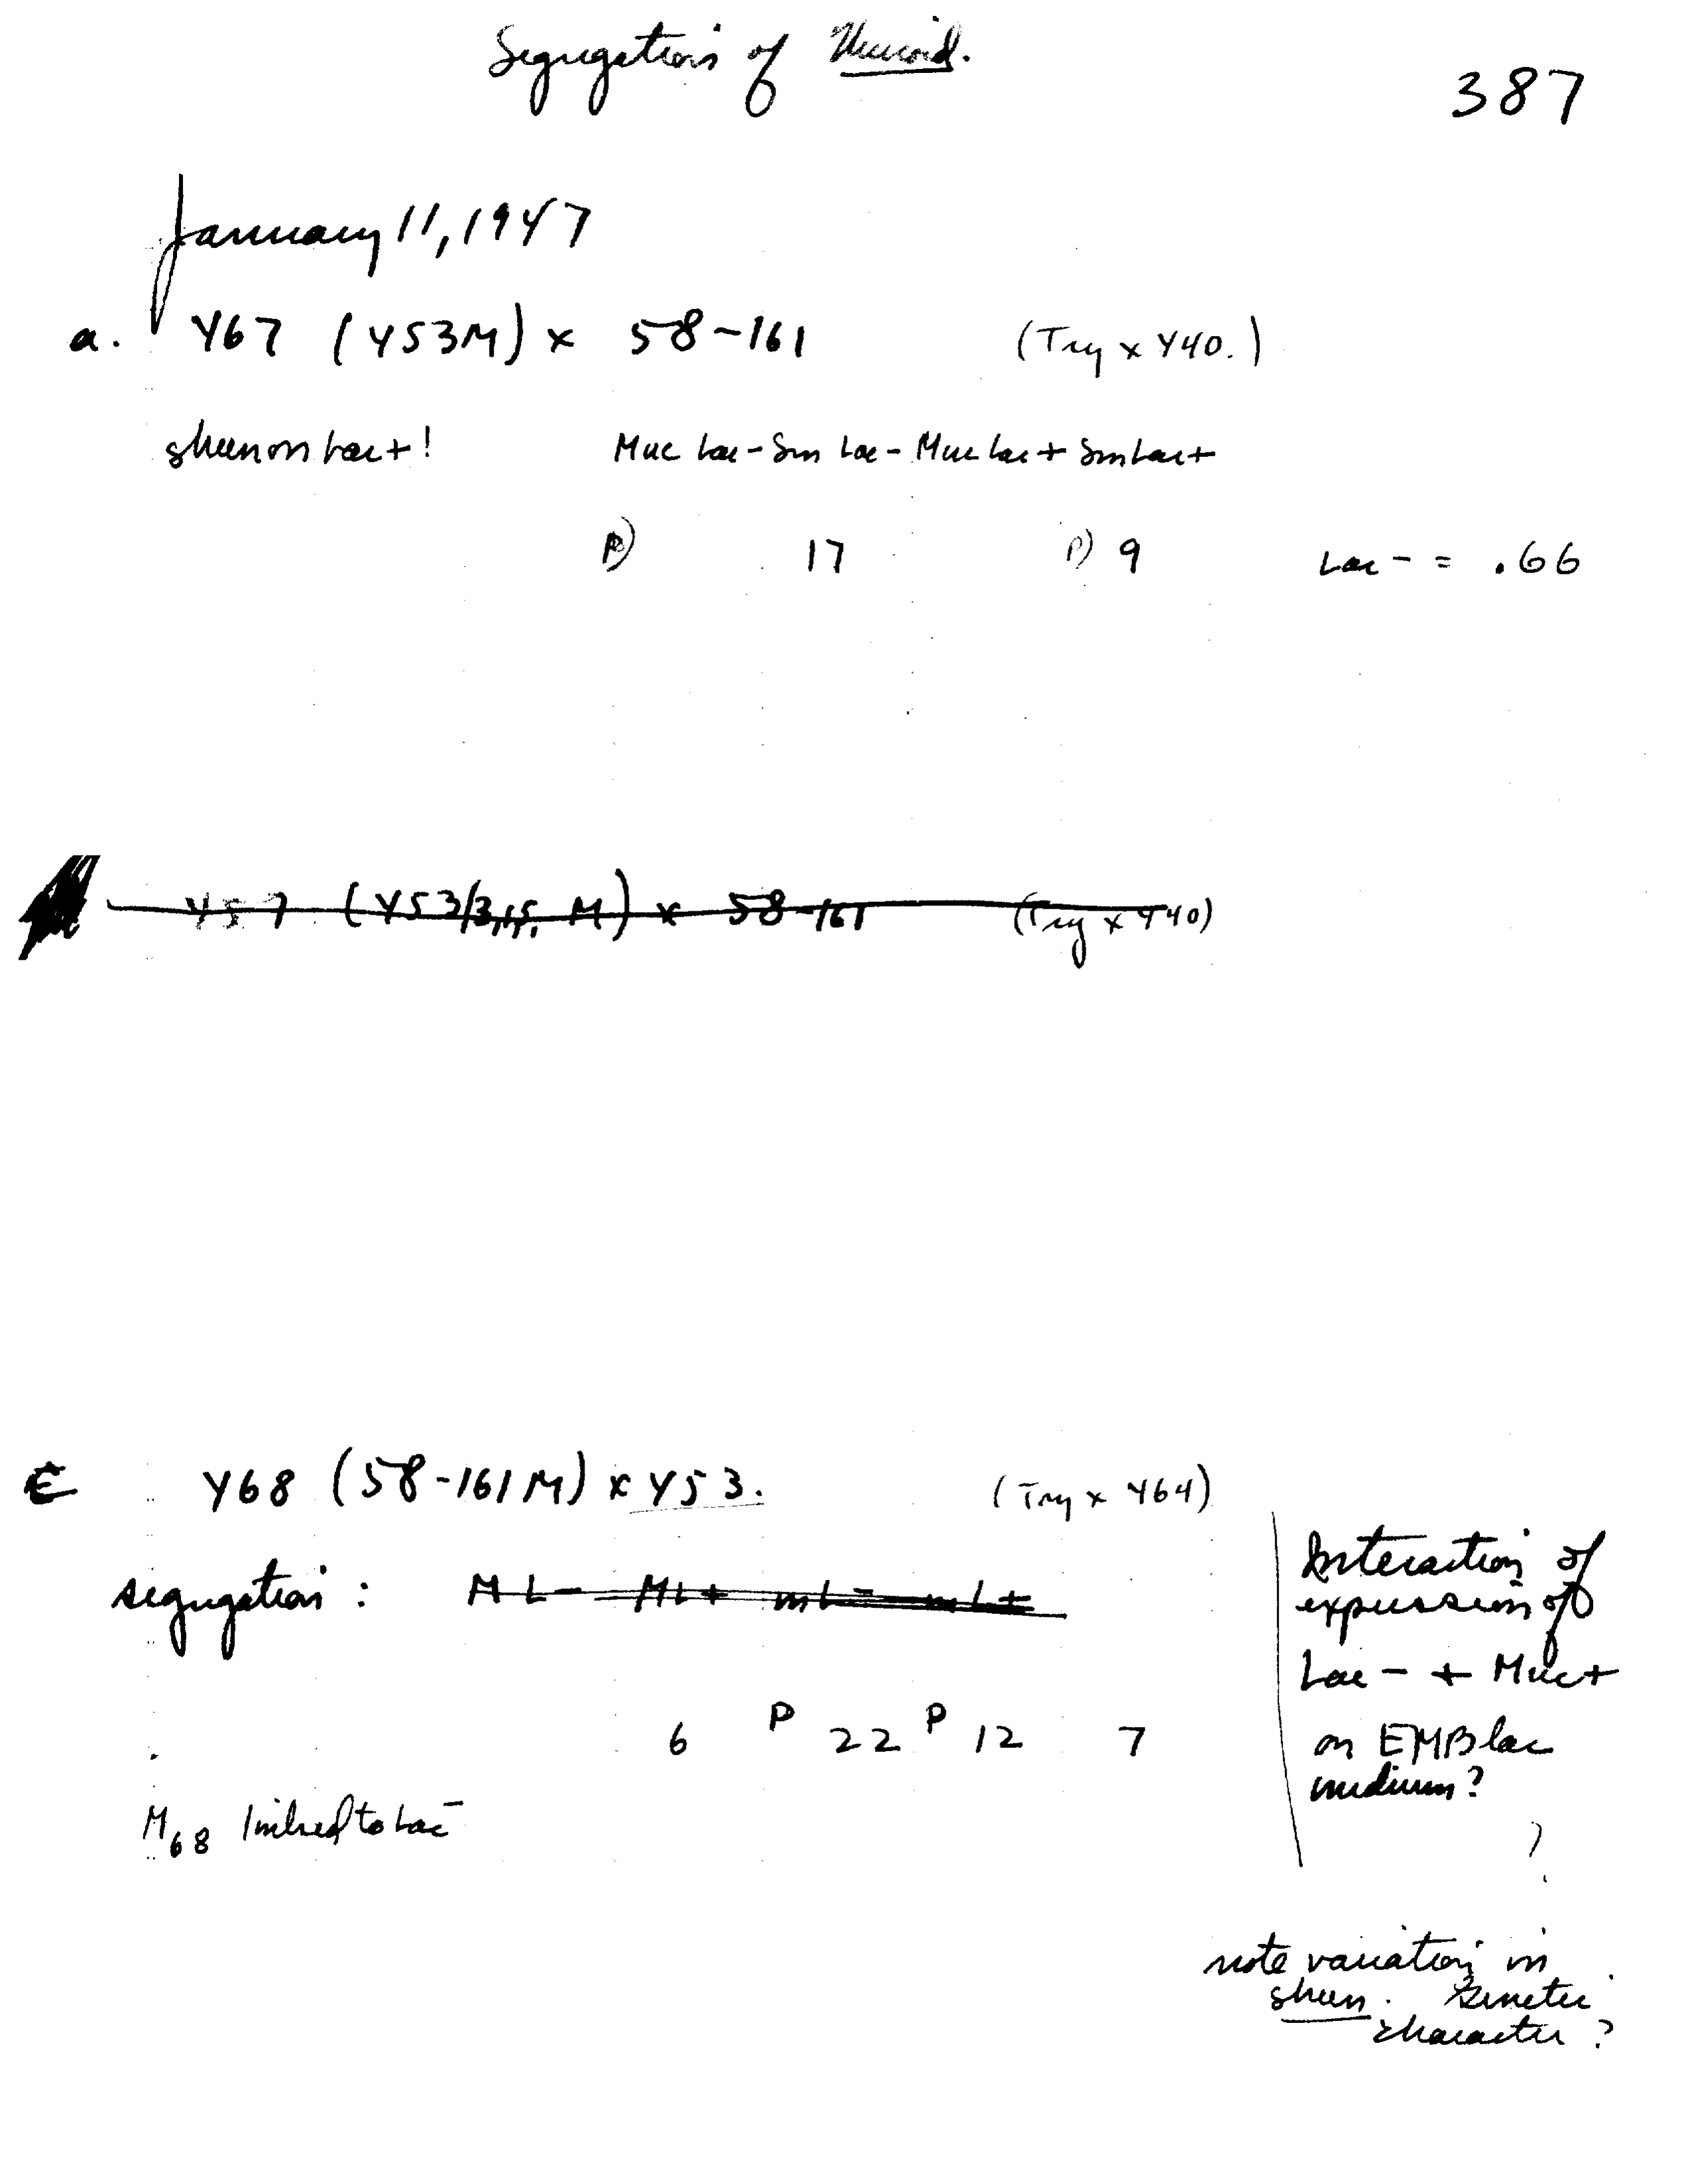 Segregation of Mucoid.
387
January 11, 1947
a. Y67 (Y53M) x 58-161 (Try x Y40.)
sheen on Lac+! Muc Lac- Sm Lac- Muc Lac+ Sm Lac+
P) 17 P) 9 Lac- = .66
Y57 (Y53/3,1,5, M) x 58-161 (Try x Y40)
Y68 (58-161M) x Y53. (Try x Y64)
segregation: ML- ML+ mL- mL+
6 P 22 P 12 7
M68 linked to Lac-
Interaction of
expression of
Lac- + Muc+
on EMB lac
medium?
?
note variation in
sheen. Genetic
character?